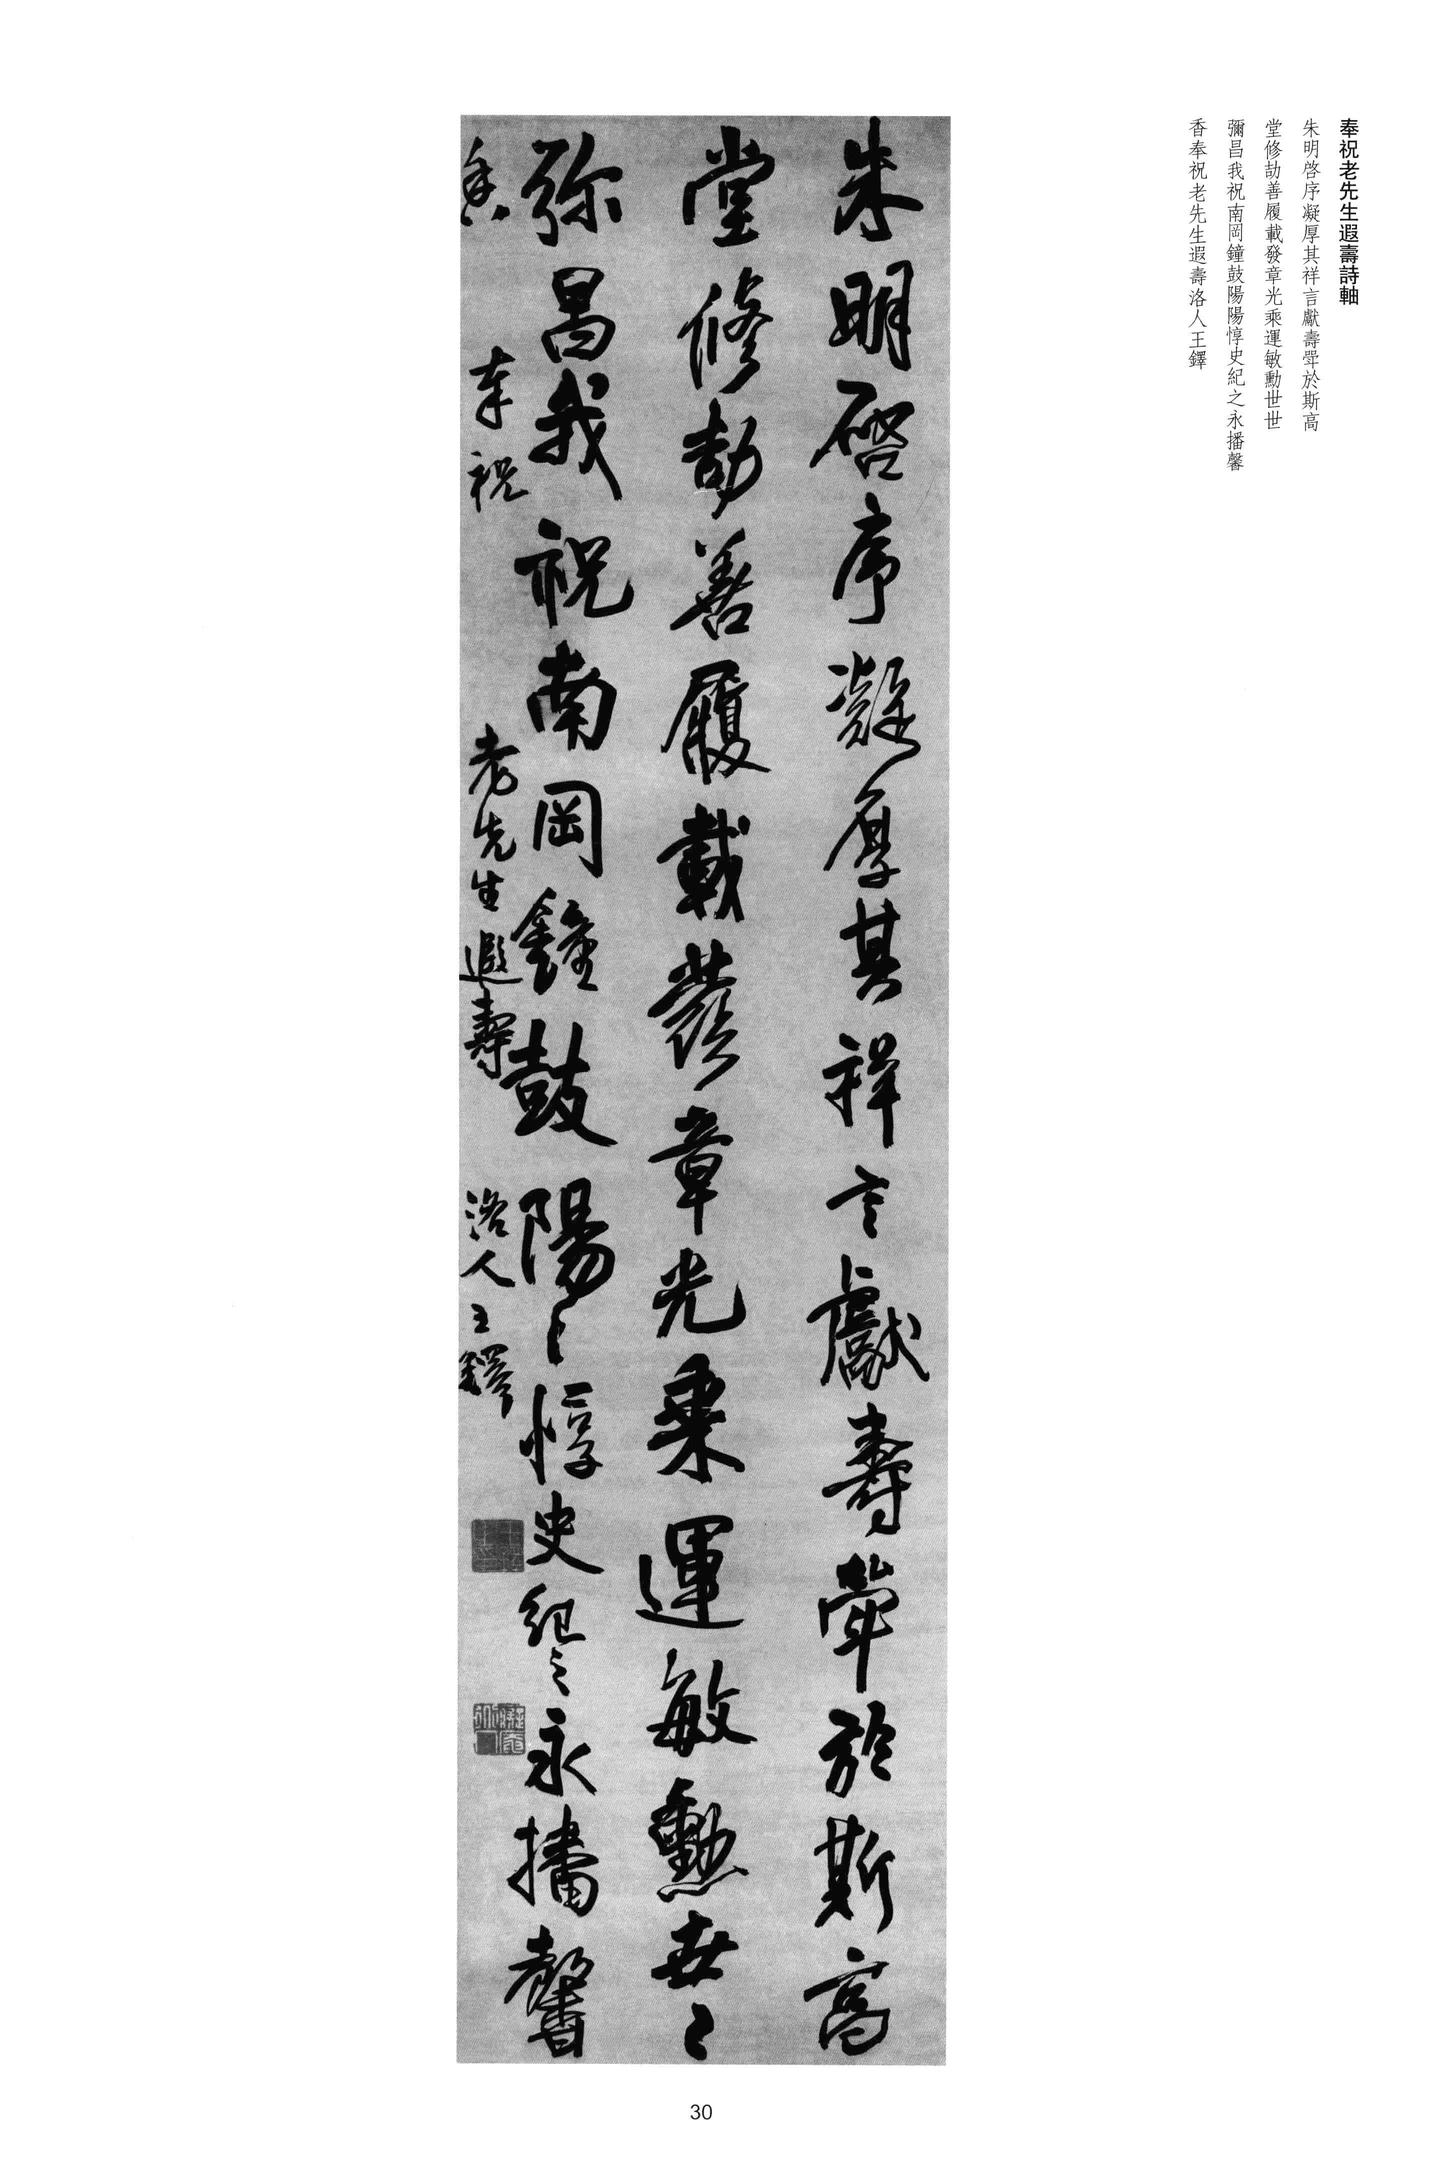 奉祝老先生遐壽詩軸
朱明啓序凝厚其祥言獻壽斝於斯高
堂修劼善履載發章光乘運敏勳世世
彌昌我祝南岡鐘鼓陽陽惇史紀之永播馨
香奉祝老先生遐壽洛人王鐸
朱明啓序凝厚其祥言獻壽斝於斯高
堂修劼善履載發章光乘運敏勳世〻
弥昌我祝南岡鐘鼓陽〻惇史紀之永播馨
香 奉祝 老先生遐壽 洛人王鐸
30